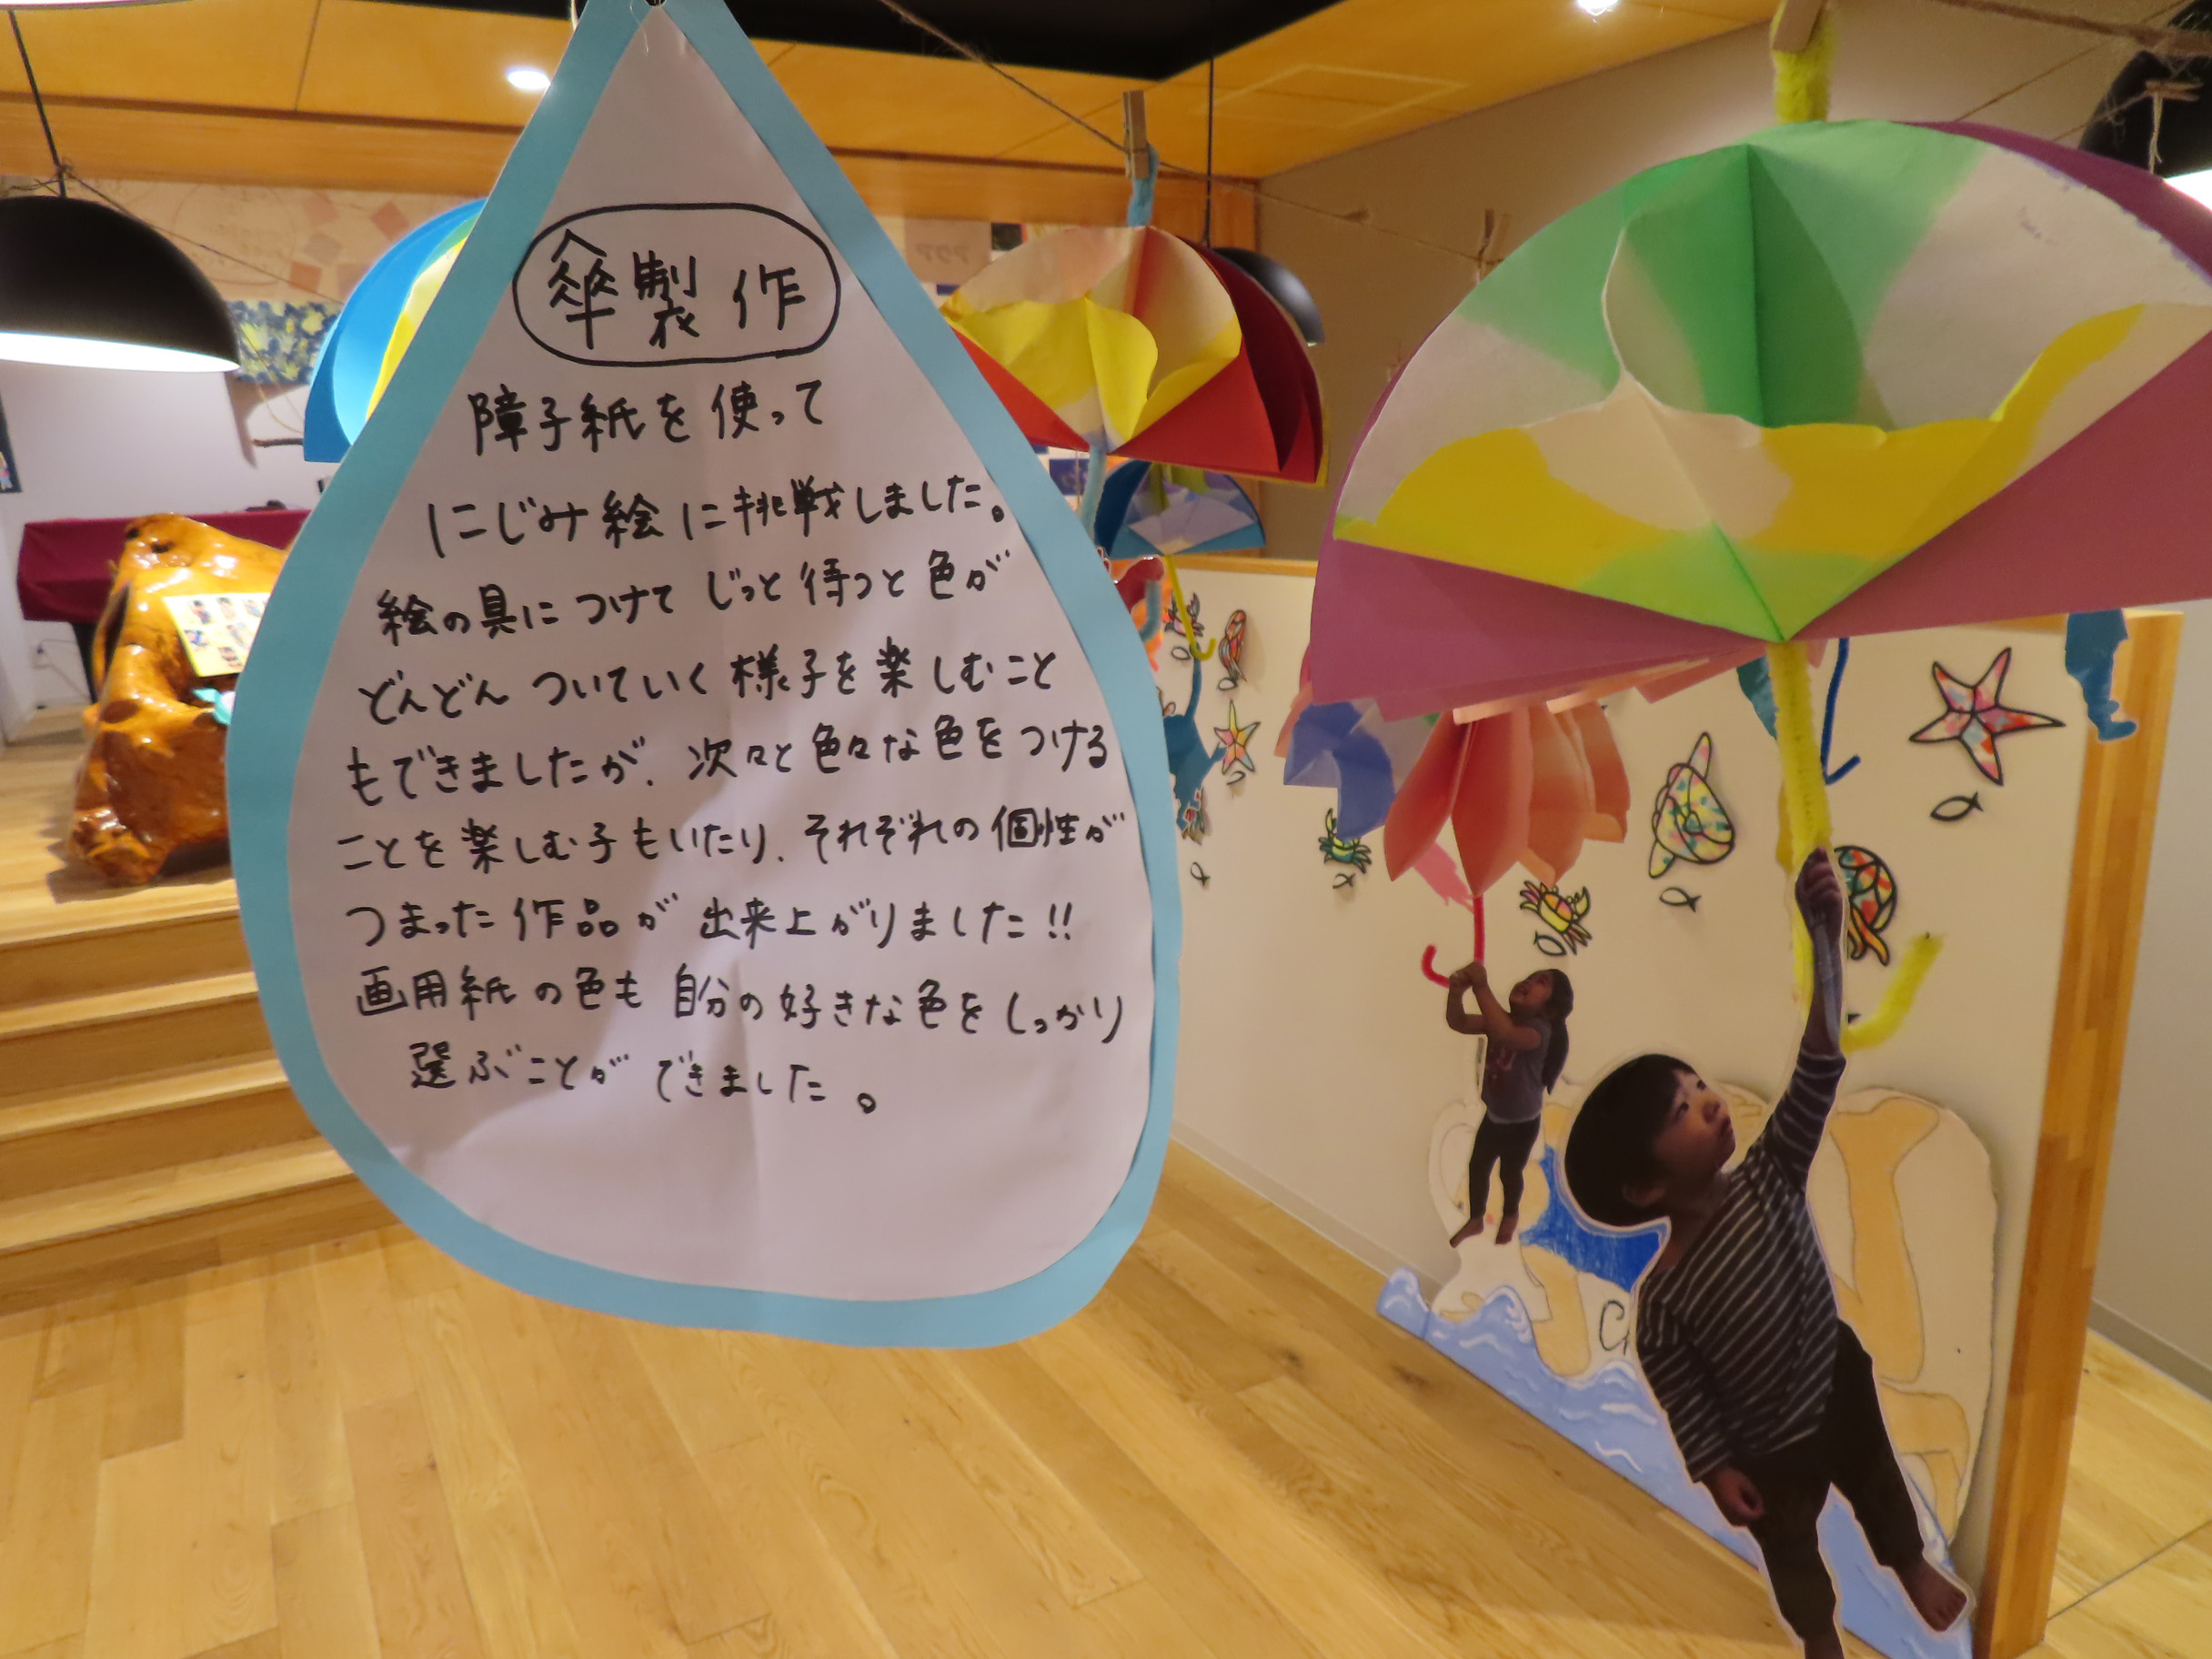 傘製作
障子紙を使って
にじみ絵に挑戦しました。
絵の具につけてじっと待つと色が
どんどんついていく様子を楽しむこと
もできましたが、次々と色々な色をつける
ことを楽しむ子もいたり、それぞれの個性が
つまった作品が出来上がりました!!
画用紙の色も自分の好きな色をしっかり
選ぶことができました。